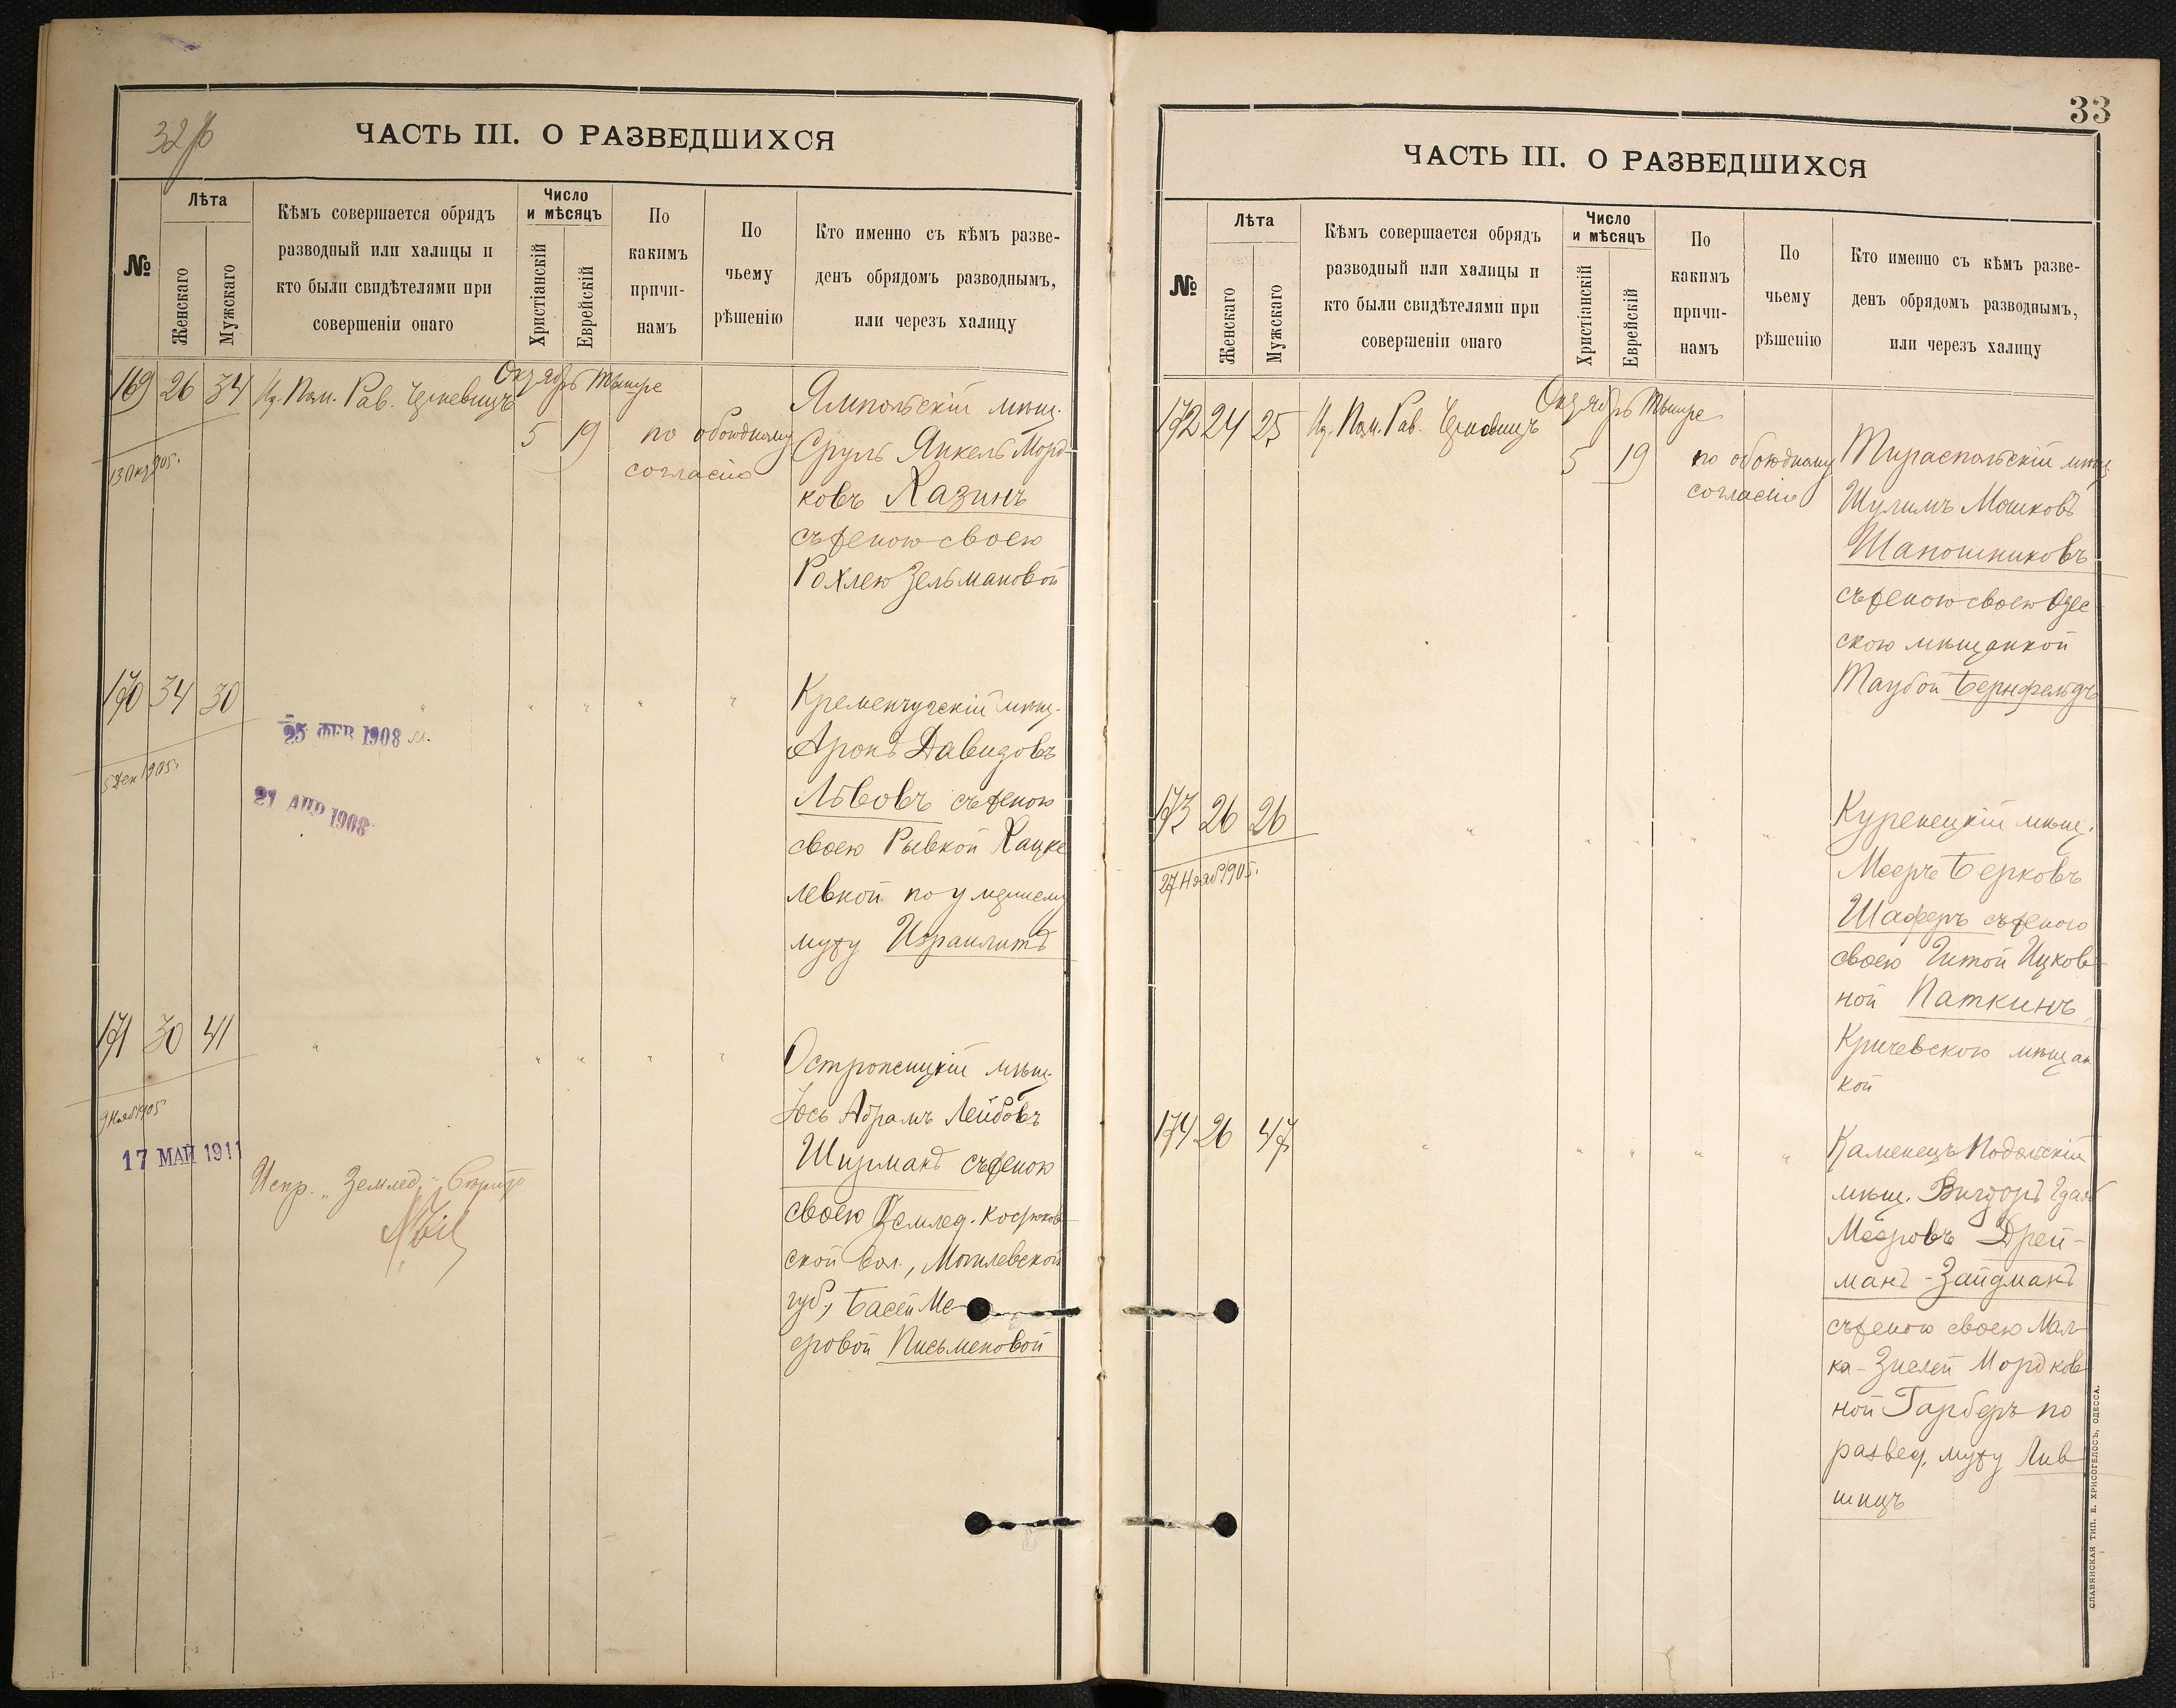 32 об
ЧАСТЬ III. О РАЗВЕДШИХСЯ
№
Лѣта
Женскаго
Мужскаго
Кѣмъ совершается обрядъ
разводный или халицы и
кто были свидѣтелями при
совершеніи онаго
Число
и мѣсяцъ
Христіанскій
Еврейскій
По
какимъ
причи-
намъ
По
чьему
рѣшенію
Кто именно съ кѣмъ разве-
денъ обрядомъ разводнымъ,
или черезъ халицу
169 26 34
Пом. Рав.
Октябрь Тишре
5 19
по обоюдному
согласію
13 Окт 905.
Ямпольскій мѣщ.
Сруль Янкель Морд-
ковъ Хазинъ
съ женою своею
Рохлею Зельмановой
170 34 30
" " " " "
25 ФЕВ 1908
21 АПР 1908
5 Дек 1905.
Кременчугскій мѣщ.
Аронъ Давидовъ
Львовъ съ женою
своею Рывкой Хацке
левной по умершему
мужу Израилитъ
171 30 41
" " " " "
9 Нояб 1905
17 МАЙ 1911
Испр. „Землед."
мѣщ.
Юсь Абрамъ Лейбовъ
Шизманъ съ женою
своею Землед.
ской вол., Могилевской
губ., Басей Ме-
еровой Письменовой
33
ЧАСТЬ III. О РАЗВЕДШИХСЯ
№
Лѣта
Женскаго
Мужскаго
Кѣмъ совершается обрядъ
разводный или халицы и
кто были свидѣтелями при
совершеніи онаго
Число
и мѣсяцъ
Христіанскій
Еврейскій
По
какимъ
причи-
намъ
По
чьему
рѣшенію
Кто именно съ кѣмъ разве-
денъ обрядомъ разводнымъ,
или черезъ халицу
172 24 25
Пом. Рав.
Октябрь Тишре
5 19
по обоюдному
согласію
Тираспольскій мѣщ.
Шулимъ Мошковъ
Шапошниковъ
съ женою своею Одес
скою мѣщанкой
Таубой Бернфельдъ
173 26 26
" " " " "
27 Нояб 1905.
Куренецкій мѣщ.
Мееръ Берковъ
Шаферъ съ женою
своею Гитой Ицков-
ной Паткинъ,
Кричевскою мѣщан
кой
174 26 47
" " " " "
Каменецъ Подольскій
мѣщ. Вигдоръ
Мееровъ Дрей-
манъ-Зайдманъ
съ женою своею Мал-
ка-Зислей Мордков
ной Гарберъ по
развед. мужу Лив
шицъ
СЛАВЯНСКАЯ ТИП. Е. ХРИСОГЕЛОСЪ, ОДЕССА.